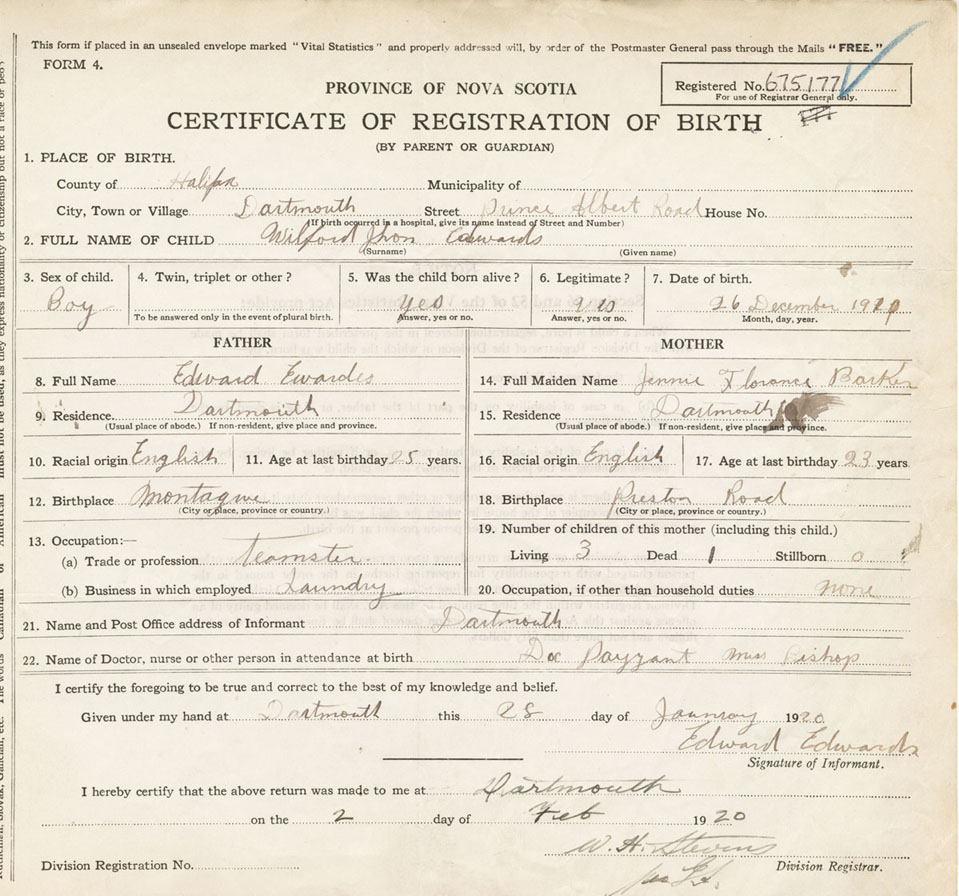 This form if placed in an unsealed envelope marked "Vital Statistics" and properly addressed will, by order of the Postmaster General pass through the Mails "FREE."
FORM 4.
Registered No. 675177
For use of Registrar General only.
PROVINCE OF NOVA SCOTIA
CERTIFICATE OF REGISTRATION OF BIRTH
(BY PARENT OR GUARDIAN)
1. PLACE OF BIRTH.
County of Halifax Municipality of
City, Town or Village Dartmouth Street Prince Albert Road House No.
(If birth occurred in a hospital, give its name instead of Street and Number)
2. FULL NAME OF CHILD Wilford Jhon Edwards
(Surname) (Given name)
3. Sex of child. 4. Twin, triplet or other? 5. Was the child born alive? 6. Legitimate? 7. Date of birth.
Boy yes yes 26 December
To be answered only in the event of plural birth. Answer, yes or no. Answer, yes or no. Month, day, year.
FATHER MOTHER
8. Full Name Edward Ewardes 14. Full Maiden Name Jennie Florance Barker
9. Residence. Dartmouth 15. Residence Dartmouth
(Usual place of abode.) If non-resident, give place and province. (Usual place of abode.) If non-resident, give place and province.
10. Racial origin English 11. Age at last birthday 25 years. 16. Racial origin English 17. Age at last birthday 23 years.
12. Birthplace Montague 18. Birthplace Preston Road
(City or place, province or country.) (City or place, province or country.)
13. Occupation:— 19. Number of children of this mother (including this child.)
(a) Trade or profession Teamster Living 3 Dead 1 Stillborn 0
(b) Business in which employed Laundry 20. Occupation, if other than household duties none
21. Name and Post Office address of Informant Dartmouth
22. Name of Doctor, nurse or other person in attendance at birth Doc Payzant Miss Bishop
I certify the foregoing to be true and correct to the best of my knowledge and belief.
Given under my hand at Dartmouth this 28 day of Jaunray 1920
Edward Edwards
Signature of Informant.
I hereby certify that the above return was made to me at Dartmouth
on the 2 day of Feb 1920
W. H. Stevens
Division Registration No. Division Registrar.